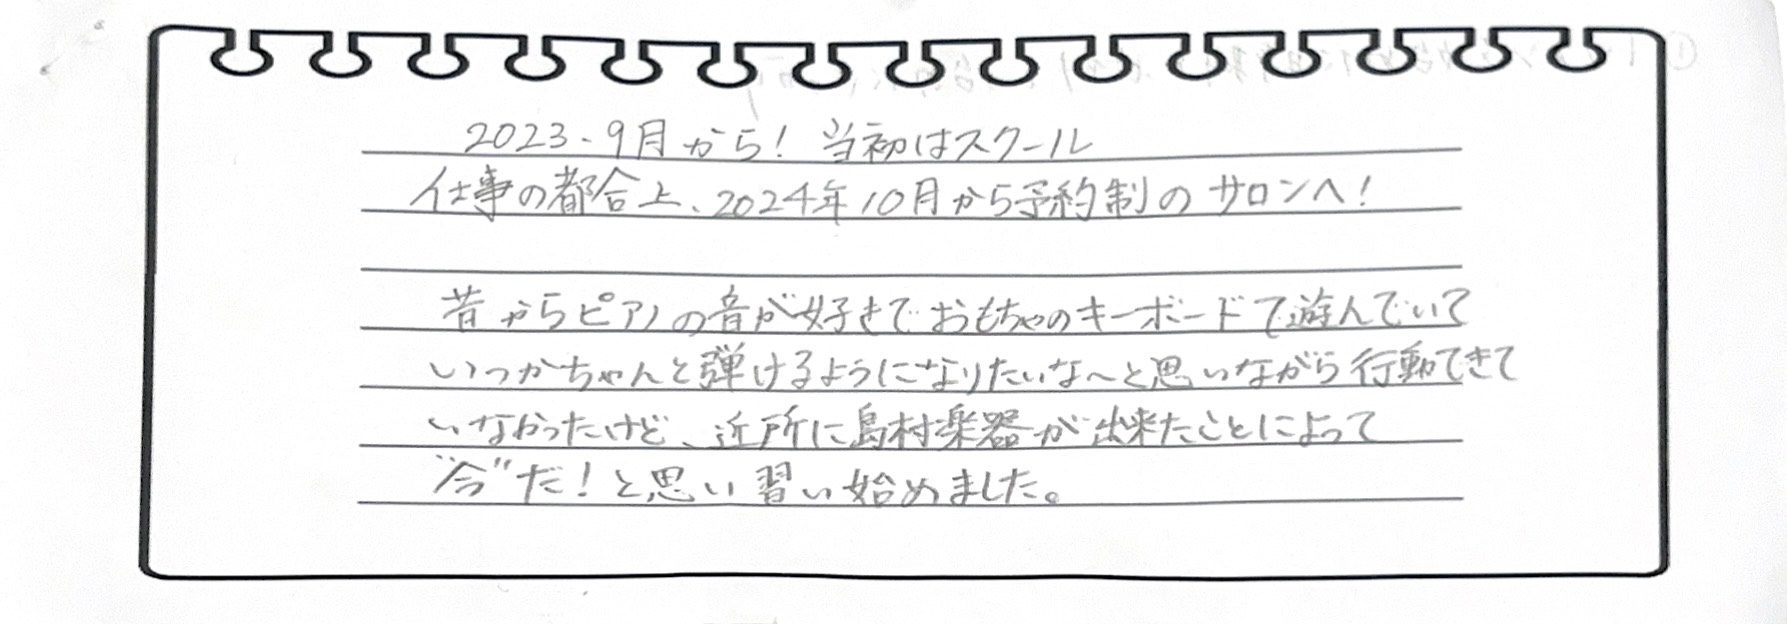 2023.9月から！当初はスクール
仕事の都合上、2024年10月から予約制のサロンへ！
昔からピアノの音が好きでおもちゃのキーボードで遊んでいて
いつかちゃんと弾けるようになりたいな〜と思いながら行動できて
いなかったけど、近所に島村楽器が出来たことによって
"今"だ！と思い習い始めました。